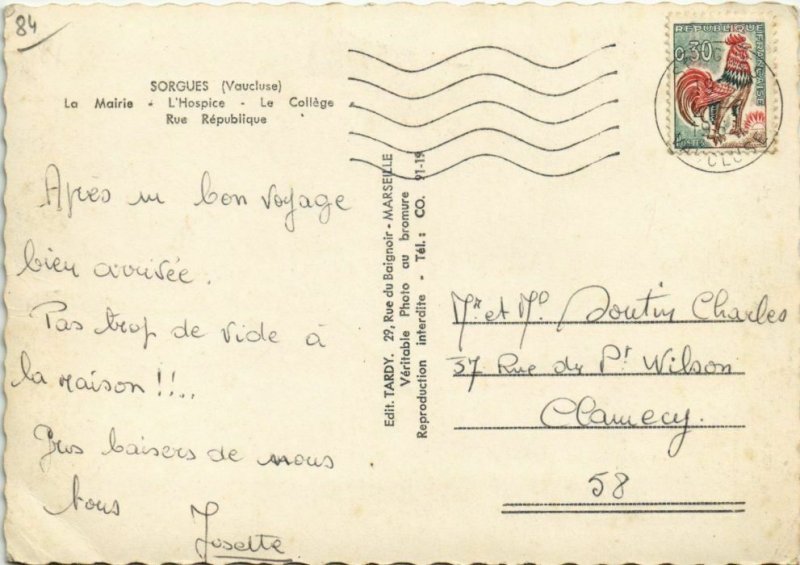 84
SORGUES (Vaucluse)
La Mairie - L'Hospice - Le Collège
Rue République
Après un bon voyage
bien arrivée.
Pas trop de vide à
la maison !!!..
Gros baisers de nous
tous
Josette
Edit. TARDY. 29, Rue du Baignoir - MARSEILLE
Véritable Photo au bromure
Reproduction interdite - Tél. : CO. 91-19
REPUBLIQUE FRANÇAISE
0,30
POSTES
VAUCLUSE
Mr et Md Doutin Charles
37 Rue du Pt Wilson
Clamecy.
58